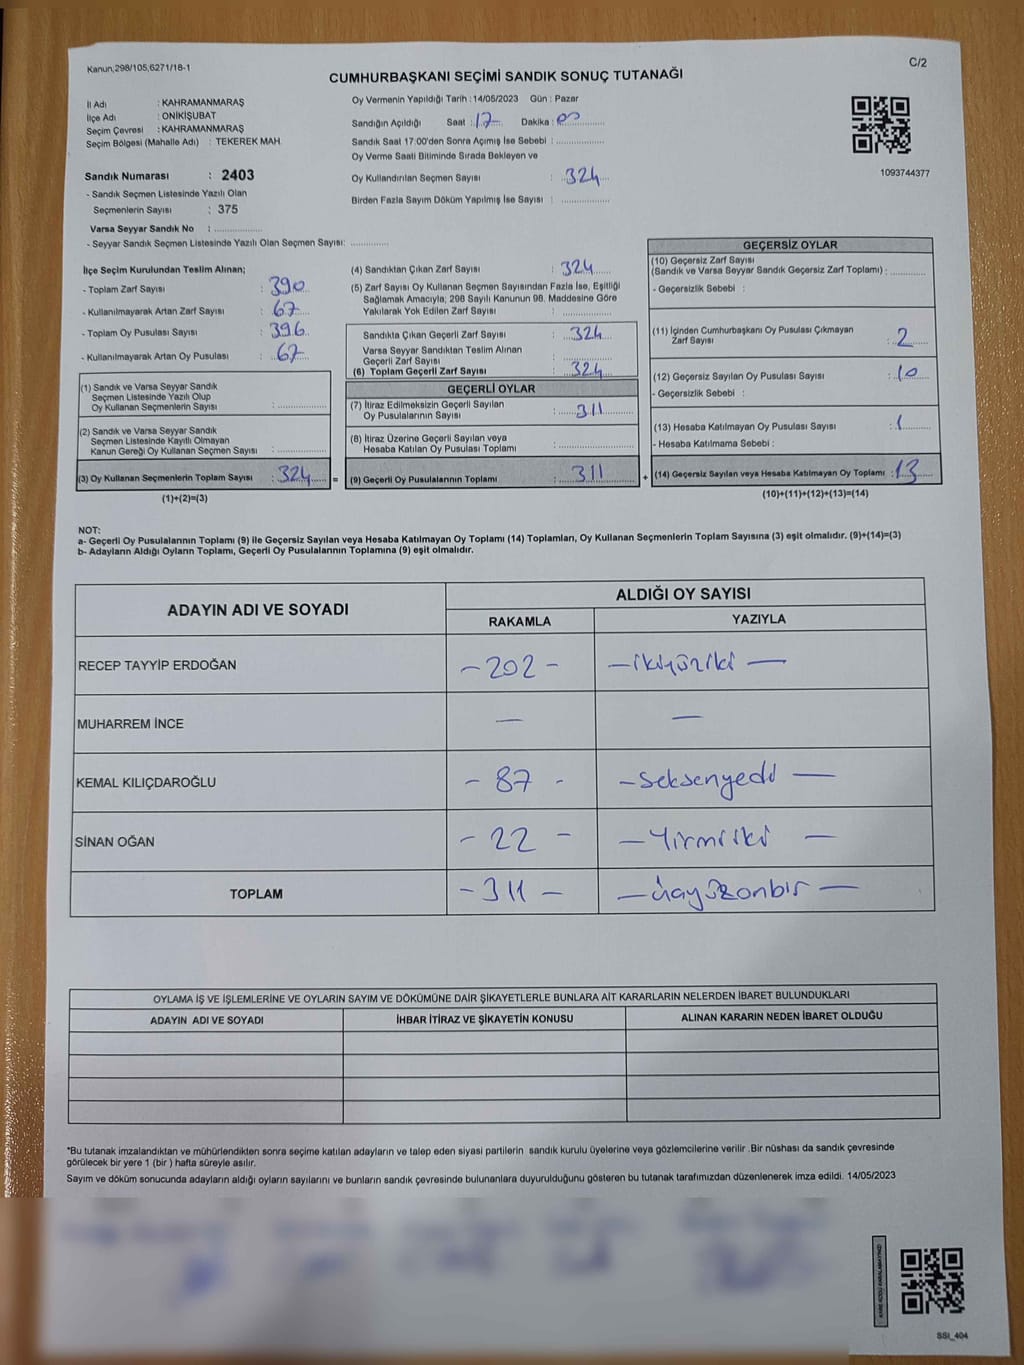 Kanun,298/105,6271/18-1
C/2
CUMHURBAŞKANI SEÇİMİ SANDIK SONUÇ TUTANAĞI
İl Adı : KAHRAMANMARAŞ
İlçe Adı : ONİKİŞUBAT
Seçim Çevresi : KAHRAMANMARAŞ
Seçim Bölgesi (Mahalle Adı) : TEKEREK MAH.
Oy Vermenin Yapıldığı Tarih : 14/05/2023 Gün : Pazar
Sandığın Açıldığı Saat : 17 Dakika : 00
Sandık Saat 17:00'den Sonra Açımış İse Sebebi :
Oy Verme Saati Bitiminde Sırada Bekleyen ve
Oy Kullandırılan Seçmen Sayısı : 324
Birden Fazla Sayım Döküm Yapılmış İse Sayısı :
1093744377
Sandık Numarası : 2403
- Sandık Seçmen Listesinde Yazılı Olan
Seçmenlerin Sayısı : 375
Varsa Seyyar Sandık No :
- Seyyar Sandık Seçmen Listesinde Yazılı Olan Seçmen Sayısı:
İlçe Seçim Kurulundan Teslim Alınan;
- Toplam Zarf Sayısı : 390
- Kullanılmayarak Artan Zarf Sayısı : 67
- Toplam Oy Pusulası Sayısı : 396
- Kullanılmayarak Artan Oy Pusulası : 67
(1) Sandık ve Varsa Seyyar Sandık
Seçmen Listesinde Yazılı Olup
Oy Kullanan Seçmenlerin Sayısı :
(2) Sandık ve Varsa Seyyar Sandık
Seçmen Listesinde Kayıtlı Olmayan
Kanun Gereği Oy Kullanan Seçmen Sayısı :
(3) Oy Kullanan Seçmenlerin Toplam Sayısı : 324 =
(1)+(2)=(3)
(4) Sandıktan Çıkan Zarf Sayısı : 324
(5) Zarf Sayısı Oy Kullanan Seçmen Sayısından Fazla İse, Eşitliği
Sağlamak Amacıyla; 298 Sayılı Kanunun 98. Maddesine Göre
Yakılarak Yok Edilen Zarf Sayısı :
Sandıkta Çıkan Geçerli Zarf Sayısı : 324
Varsa Seyyar Sandıktan Teslim Alınan
Geçerli Zarf Sayısı :
(6) Toplam Geçerli Zarf Sayısı : 324
GEÇERLİ OYLAR
(7) İtiraz Edilmeksizin Geçerli Sayılan
Oy Pusulalarının Sayısı : 311
(8) İtiraz Üzerine Geçerli Sayılan veya
Hesaba Katılan Oy Pusulası Toplamı :
(9) Geçerli Oy Pusulalarının Toplamı : 311 +
GEÇERSİZ OYLAR
(10) Geçersiz Zarf Sayısı
(Sandık ve Varsa Seyyar Sandık Geçersiz Zarf Toplamı) :
- Geçersizlik Sebebi :
(11) İçinden Cumhurbaşkanı Oy Pusulası Çıkmayan
Zarf Sayısı : 2
(12) Geçersiz Sayılan Oy Pusulası Sayısı : 10
- Geçersizlik Sebebi :
(13) Hesaba Katılmayan Oy Pusulası Sayısı : 1
- Hesaba Katılmama Sebebi :
(14) Geçersiz Sayılan veya Hesaba Katılmayan Oy Toplamı : 13
(10)+(11)+(12)+(13)=(14)
NOT:
a- Geçerli Oy Pusulalarının Toplamı (9) ile Geçersiz Sayılan veya Hesaba Katılmayan Oy Toplamı (14) Toplamları, Oy Kullanan Seçmenlerin Toplam Sayısına (3) eşit olmalıdır. (9)+(14)=(3)
b- Adayların Aldığı Oyların Toplamı, Geçerli Oy Pusulalarının Toplamına (9) eşit olmalıdır.
ADAYIN ADI VE SOYADI
ALDIĞI OY SAYISI
RAKAMLA YAZIYLA
RECEP TAYYİP ERDOĞAN - 202 - - ikiyüziki -
MUHARREM İNCE - -
KEMAL KILIÇDAROĞLU - 87 - - seksenyedi -
SİNAN OĞAN - 22 - - Yirmiiki -
TOPLAM - 311 - - üçyüzonbir -
OYLAMA İŞ VE İŞLEMLERİNE VE OYLARIN SAYIM VE DÖKÜMÜNE DAİR ŞİKAYETLERLE BUNLARA AİT KARARLARIN NELERDEN İBARET BULUNDUKLARI
ADAYIN ADI VE SOYADI İHBAR İTİRAZ VE ŞİKAYETİN KONUSU ALINAN KARARIN NEDEN İBARET OLDUĞU
*Bu tutanak imzalandıktan ve mühürlendikten sonra seçime katılan adayların ve talep eden siyasi partilerin sandık kurulu üyelerine veya gözlemcilerine verilir. Bir nüshası da sandık çevresinde
görülecek bir yere 1 (bir ) hafta süreyle asılır.
Sayım ve döküm sonucunda adayların aldığı oyların sayılarını ve bunların sandık çevresinde bulunanlara duyurulduğunu gösteren bu tutanak tarafımızdan düzenlenerek imza edildi. 14/05/2023
SSI_404